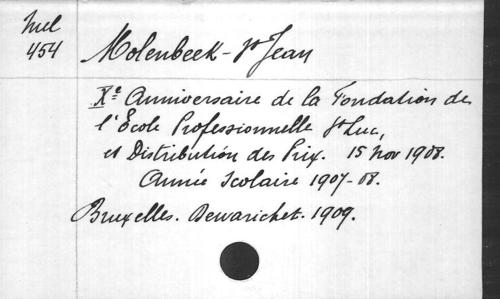 Mel
454
Molenbeek-St Jean
Xe Anniversaire de la Fondation de
l'École Professionnelle St Luc,
et Distribution des Prix. 15 Nov 1908.
Année Scolaire 1907-08.
Bruxelles. Dewarichet. 1909.